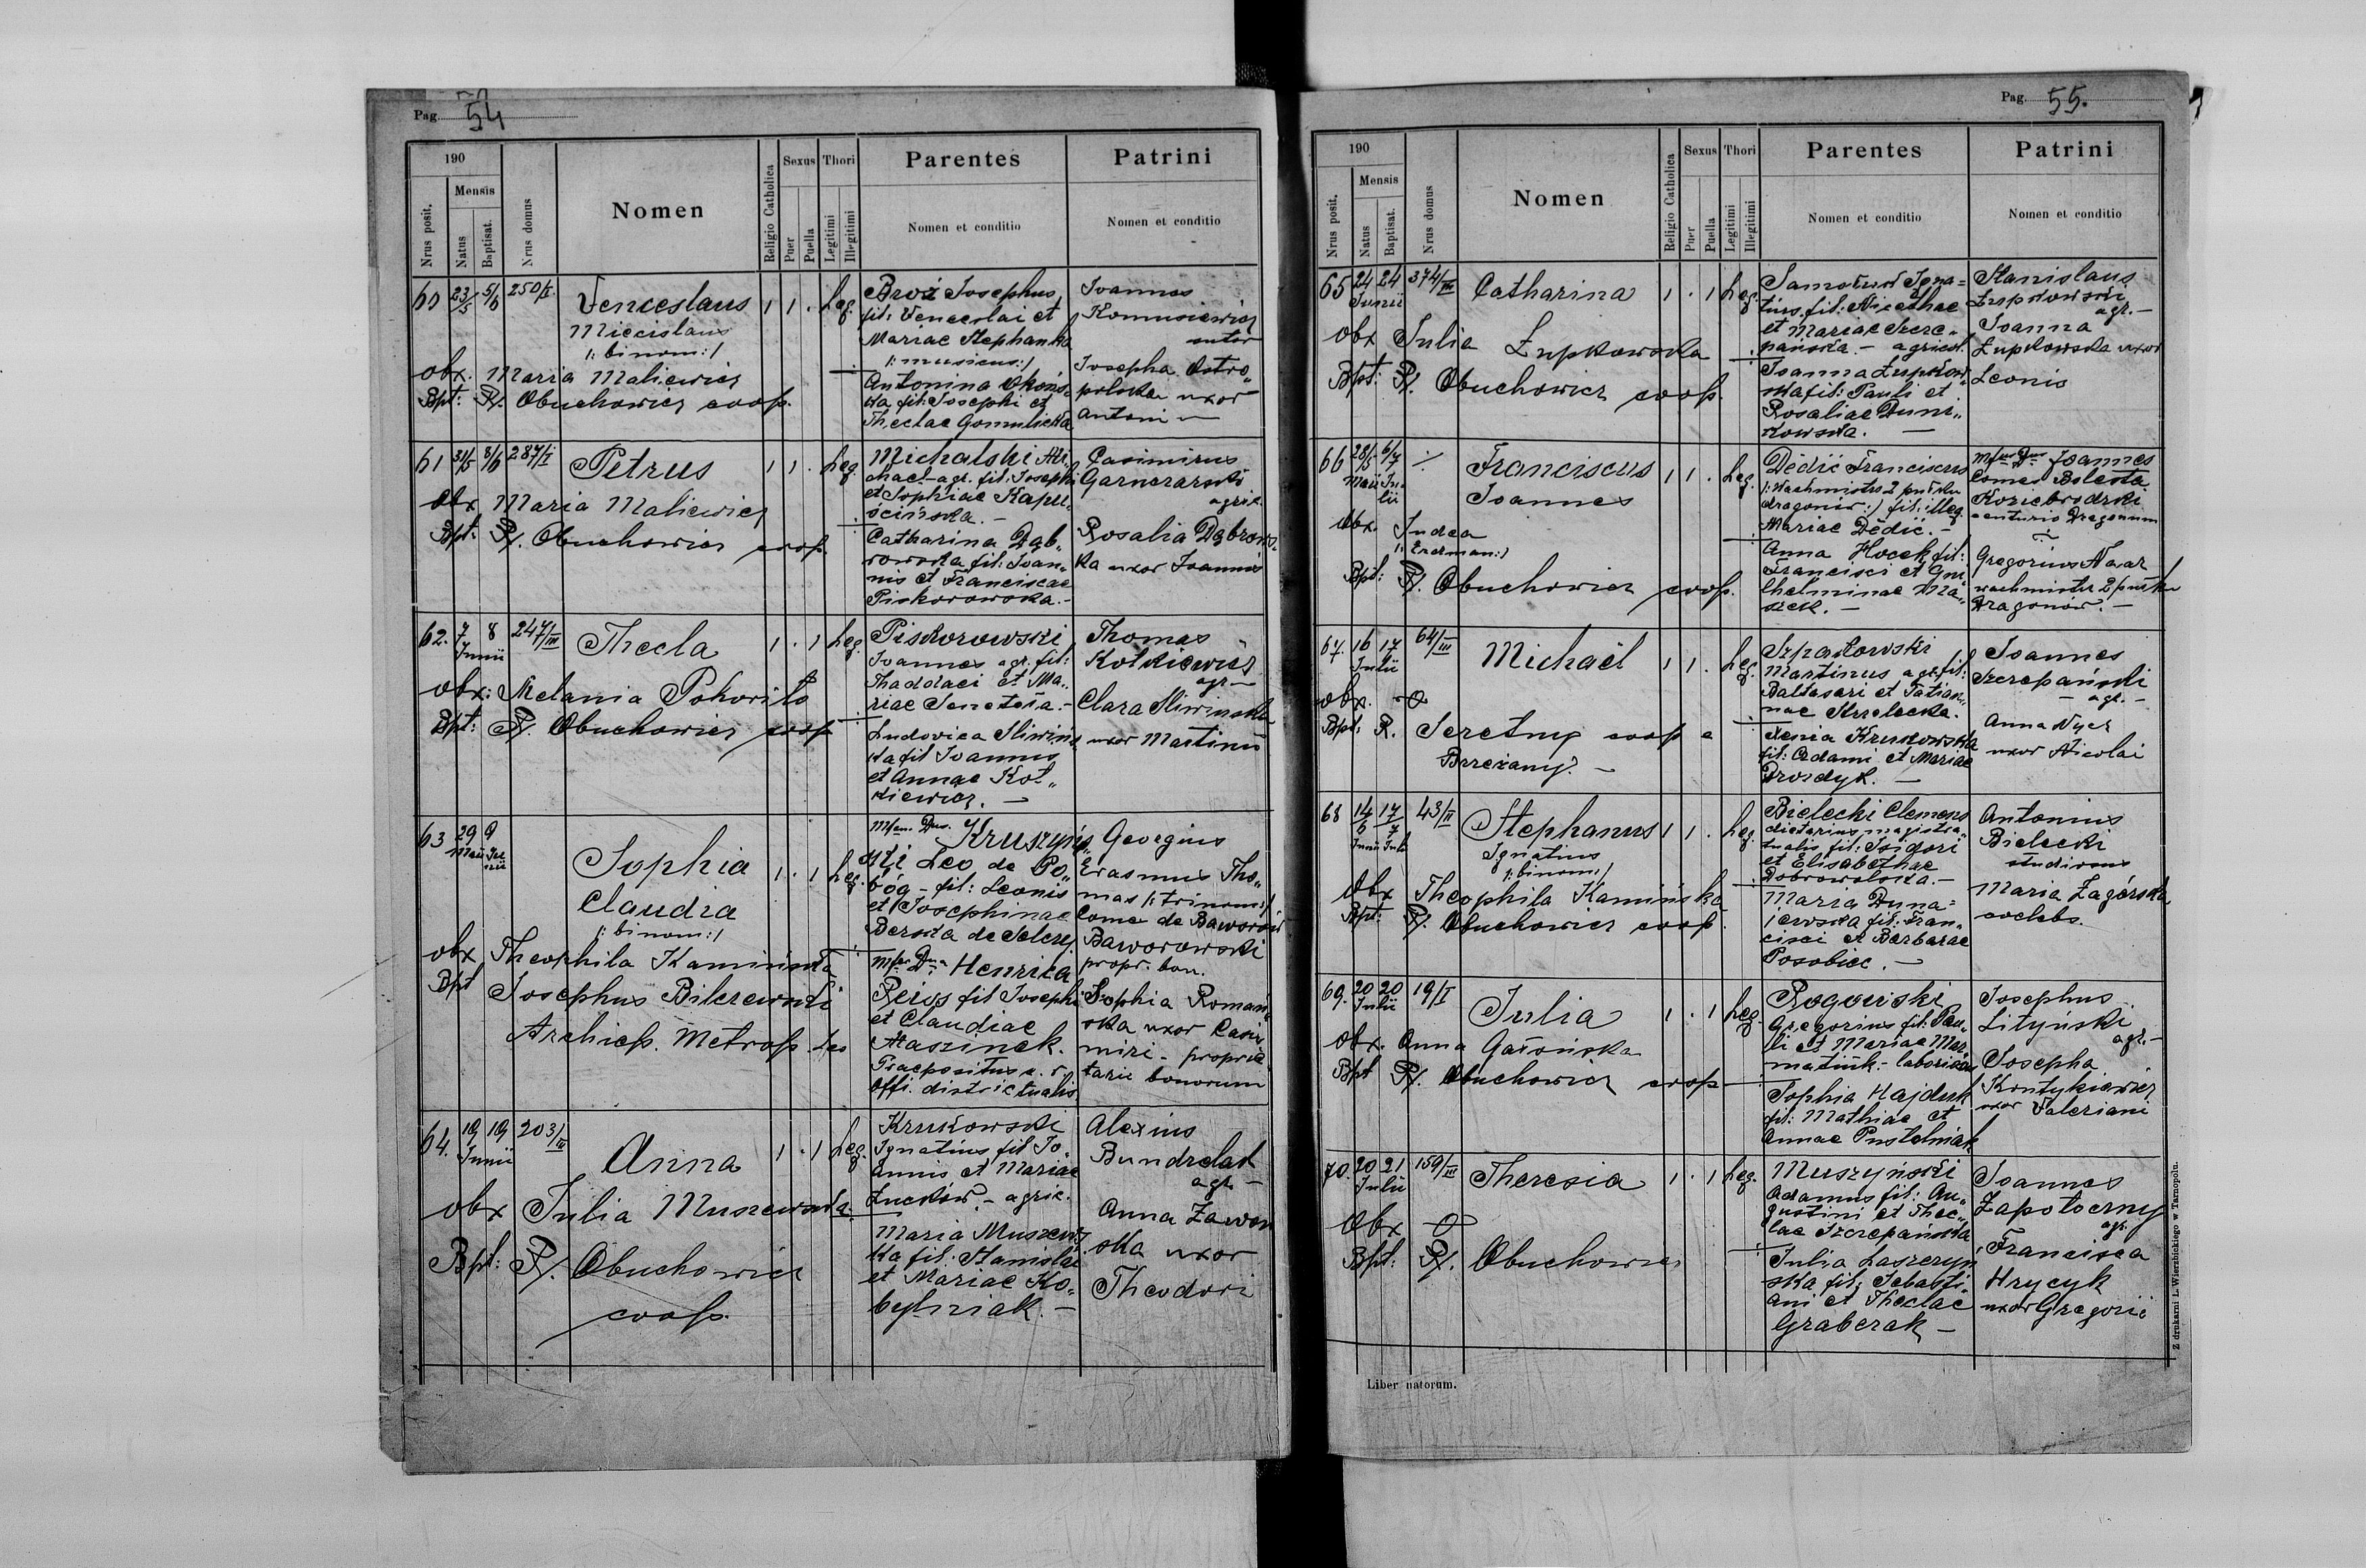 Pag. 54
190
Nrus posit.
Mensis
Natus
Baptisat.
Nrus domus
Nomen
Religio Catholica
Sexus
Puer
Puella
Thori
Legitimi
Illegitimi
Parentes
Nomen et conditio
Patrini
Nomen et conditio
60 23/5 5/6 250/I. Venceslaus 1 1 . Leg.
Miecislaus
/: binom :/
obx. Maria Maliewicz
Bpt: R/. Obuchowicz coop.
Broż Josephus
fil: Venceslai et
Mariae Stephanska
/: musicus :/
Antonina Okońs„
ka fil: Josephi et
Theclae Gomulicka
Joannes
Romusiewicz
sutor
Josepha Ostro„
polska uxor
Antoni
61 31/5 8/6 287/I Petrus 1 1 . Leg.
Obx Maria Maliewicz
Bpt: R/. Obuchowicz coop.
Michalski Mi„
chael - agr. fil: Josephi
et Sophiae Kapu„
ścińska. -
Catharina Dąb„
rowska fil: Joan„
nis et Franciscae
Piskorowska. -
Casimirus
Garnczarski
agric.
Rosalia Dąbrows„
ka uxor Joannis
62. 7 8 247/III Thecla 1 . 1 Leg.
Junii
obx: Melania Pohoriło
Bpt: R/. Obuchowicz coop
Piskorowski
Joannes agr. fil:
Thaddaei et Ma„
riae Senetera. -
Ludovica Sliwińs
ka fil Joannis
et Annae Kot„
kiewicz. -
Thomas
Kotkiewicz
agr -
Clara Sliwinska
uxor Martini
63 29 9
Maii Junii
Sophia 1 . 1 Leg.
Claudia
/: binom :/
obx Theophila Kamińska
Bpt Josephus Bilczewski
Archiep. Metrop. Leo
Mfcus Dnus. Kruszyńs„
ki Leo de Po„
bóg - fil: Leonis
et Josephinae
Berska de Selery
Mfca Dna Henrica
Reiss fil Josephi
et Claudiae
Maszinck.
Praepositus c. r.
offi. districtualis
Georgius
Erasmus Tho„
mas /: trinom :/
Comes de Baworów
Baworowski
propr. bon.
Sophia Romań„
ska uxor Casi„
miri - proprie
tarii bonorum
64. 19 19 203/III Anna 1 . 1 Leg.
Junii
obx Julia Muszewska
Bpt: R/. Obuchowicz
coop.
Krukowski
Ignatius fil Jo„
annis et Mariae
Łucków - agric.
Maria Muszews„
ka fil: Stanislai
et Mariae Ko„
bylniak. -
Alexius
Bundzelak
agr -
Anna Zawor
ska uxor
Theodori
Pag. 55.
190
Nrus posit.
Mensis
Natus
Baptisat.
Nrus domus
Nomen
Religio Catholica
Sexus
Puer
Puella
Thori
Legitimi
Illegitimi
Parentes
Nomen et conditio
Patrini
Nomen et conditio
65 24 24 374/III Catharina 1 . 1 Leg.
Junii
obx Julia Łupkowska
Bpt: R/. Obuchowicz coop.
Samotwór Igna=
tius fil: Nicethae
et Mariae Szcze„
pańska. - agricol.
Joanna Łupkow„
ska fil: Pauli et
Rosaliae Duni„
kowska. -
Stanislaus
Łupkowski
agr. -
Joanna
Łupkowska uxor
Leonis
66 28/5 6/7 ·/· Franciscus 1 1 . Leg.
Maii Julii
Joannes
Obx. Judea
/: Erdman :/
Bpt: R/. Obuchowicz coop.
Dědić Franciscus
/: wachmistrz 2 pułku
dragonów :/ fil: illeg.
Mariae Dědić. -
Anna Hocek fil:
Francisci et Gui„
lhelminae Ma„
szek. -
Mfcus Dnus Joannes
Comes Bolesta
Koziebrodzki
centurio Dragonum
Gregorius Navar
wachmistrz 2 pułku
Dragonów. -
67. 16 17 64/III Michaël 1 1 . Leg.
Julii
obx.
Bpt: R. Seretny coop a
Brzeżany. -
Szpakowski
Martinus agr. fil:
Baltasari et Tatian„
nae Strzelecka.
Xenia Krukowska
fil: Adami et Mariae
Drozdyk. -
Joannes
Szczepański
- agr. -
Anna Nycz
uxor Nicolai
68 14 17 43/II Stephanus 1 1 . Leg.
6 7
Junii Julii
Ignatius
/: binom :/
Obx Theophila Kamińska
Bpt: R/. Obuchowicz coop.
Bielecki Clemens
dietarius magistra„
tualis fil: Isidori
et Elisabethae
Dobrowolska. -
Maria Duna=
jewska fil: Fran„
cisci et Barbarae
Posobiec. -
Antonius
Bielecki
studiosus
Maria Zagórska
coelebs.
69. 20 20 19/I Julia 1 . 1 Leg.
Julii
Obx. Anna Gasońska
Bpt R/. Obuchowicz coop
Rogowski
Gregorius fil: Pau„
li et Mariae Mar„
matiuk - laborioss
Sophia Hajduk
fil: Mathiae et
Annae Pustelniak
Josephus
Lityński
agr. -
Josepha
Krutykiewicz
uxor Valeriani
70. 20 21 159/III Theresia 1 . 1 Leg.
Julii
Obx
Bpt: R/. Obuchowicz
Muszyński
Adamus fil: Au„
gustini et Thec„
lae Szczepańska
Julia Laszczyń
ska fil: Sebasti„
ani et Theclae
Graberak -
Joannes
Zapotoczny
agr.
Francisca
Hrycyk
uxor Gregorii
Liber natorum.
Z drukarni L. Wierzbickiego w Tarnopolu.